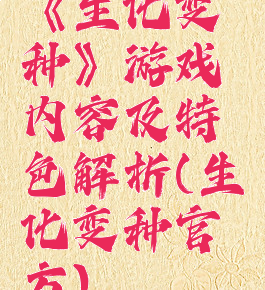 《生化变
种》游戏
内容及特
色解析(生
化变种官
方)